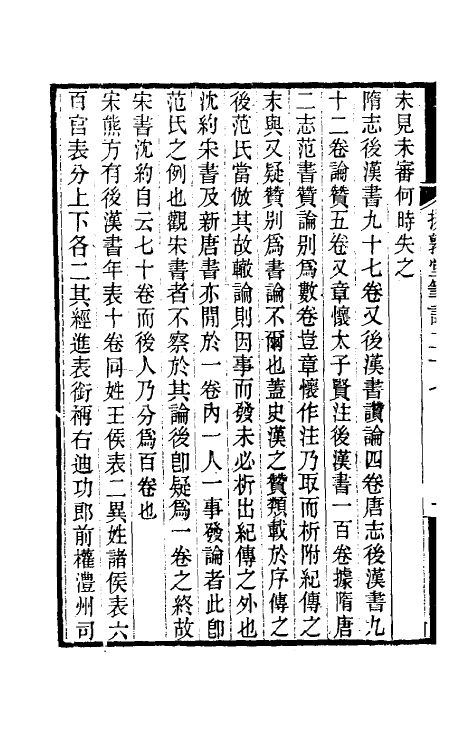 未見未審何時失之
隋志後漢書九十七卷又後漢書讚論四卷唐志後漢書九
十二卷論贊五卷又章懷太子賢注後漢書一百卷據隋唐
二志范書贊論别爲數卷豈章懷作注乃取而析附紀傳之
末與又疑贊别爲書論不爾也蓋史漢之贊類載於序傳之
後范氏當倣其故轍論則因事而發未必析出紀傳之外也
沈約宋書及新唐書亦閒於一卷內一人一事發論者此卽
范氏之例也觀宋書者不察於其論後卽疑爲一卷之終故
宋書沈約自云七十卷而後人乃分爲百卷也
宋熊方有後漢書年表十卷同姓王侯表二異姓諸侯表六
百官表分上下各二其經進表銜稱右迪功郎前權澧州司